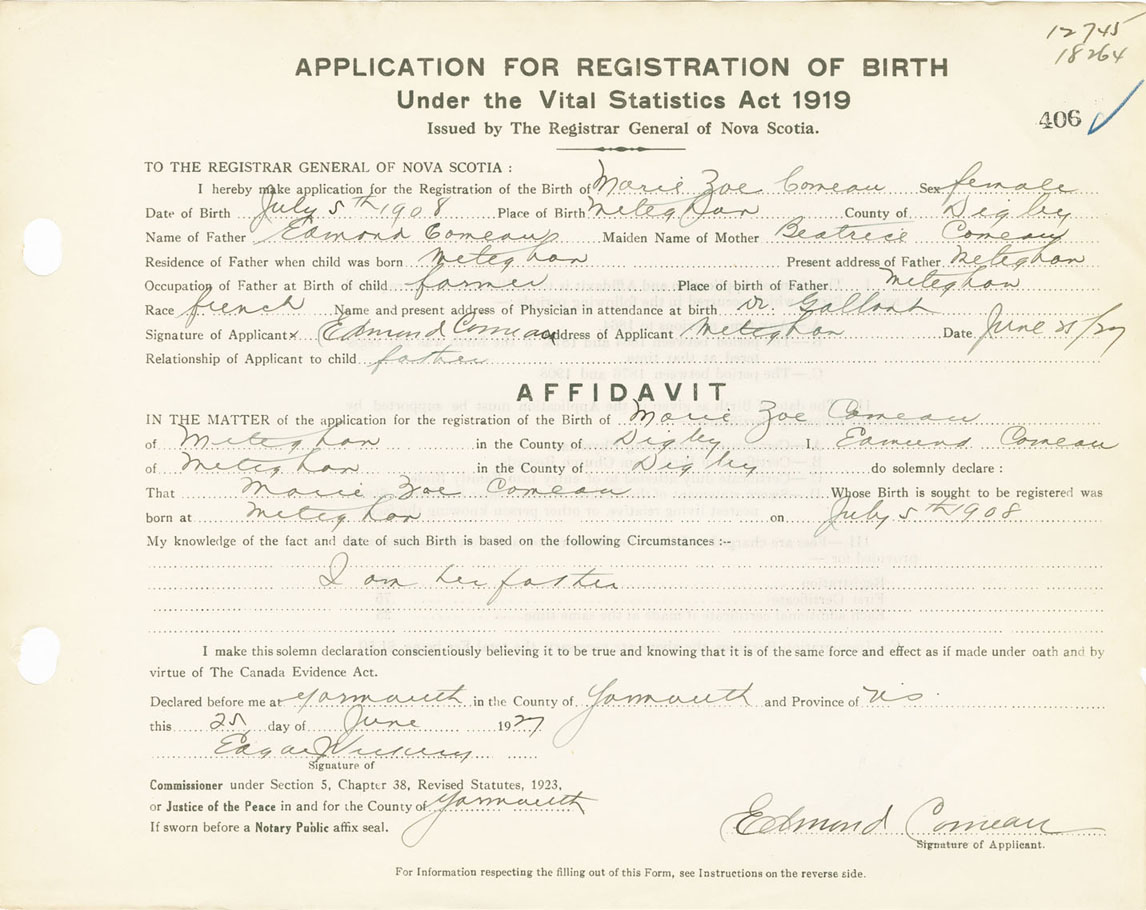 12745
18264
APPLICATION FOR REGISTRATION OF BIRTH
Under the Vital Statistics Act 1919
406
Issued by The Registrar General of Nova Scotia.
TO THE REGISTRAR GENERAL OF NOVA SCOTIA :
I hereby make application for the Registration of the Birth of Marie Zoe Comeau Sex female
Date of Birth July 5th 1908 Place of Birth Meteghan County of Digby
Name of Father Edmond Comeau Maiden Name of Mother Beatrice Comeau
Residence of Father when child was born Meteghan Present address of Father Meteghan
Occupation of Father at Birth of child farmer Place of birth of Father Meteghan
Race french Name and present address of Physician in attendance at birth Dr. Gallant
Signature of Applicant x Edmond Comeau Address of Applicant Meteghan Date June 25/27
Relationship of Applicant to child father
AFFIDAVIT
IN THE MATTER of the application for the registration of the Birth of Marie Zoe Comeau
of Meteghan in the County of Digby I, Edmund Comeau
of Meteghan in the County of Digby do solemnly declare :
That Marie Zoe Comeau Whose Birth is sought to be registered was
born at Meteghan on July 5th 1908
My knowledge of the fact and date of such Birth is based on the following Circumstances :--
I am her father
I make this solemn declaration conscientiously believing it to be true and knowing that it is of the same force and effect as if made under oath and by
virtue of The Canada Evidence Act.
Declared before me at Yarmouth in the County of Yarmouth and Province of NS
this 25 day of June 1927
Edgar
Signature of
Commissioner under Section 5, Chapter 38, Revised Statutes, 1923,
or Justice of the Peace in and for the County of Yarmouth
If sworn before a Notary Public affix seal.
Edmond Comeau
Signature of Applicant.
For Information respecting the filling out of this Form, see Instructions on the reverse side.